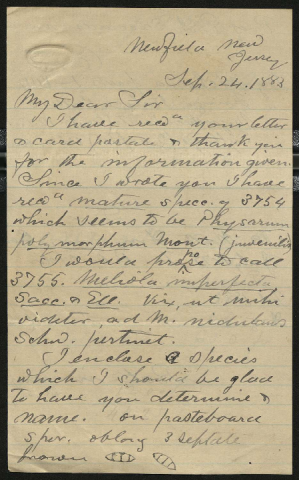 Newfield New
Jersey
Sep. 24. 1883
My Dear Sir
I have recd your letter
& card postale & thank you
for the information given.
Since I wrote you I have
recd mature spec. of 3754
which seems to be Physarum
polymorphum Mont. (juvenilis)
I would propose to call
3755. Meliola imperfecta
Sacc. & Ell. Vix, ut mihi
videtur, ad M. nidulans
Schw. pertinet.
I enclose a species
which I should be glad
to have you determine &
name. on pasteboard
spor. oblong 3 septate
brown